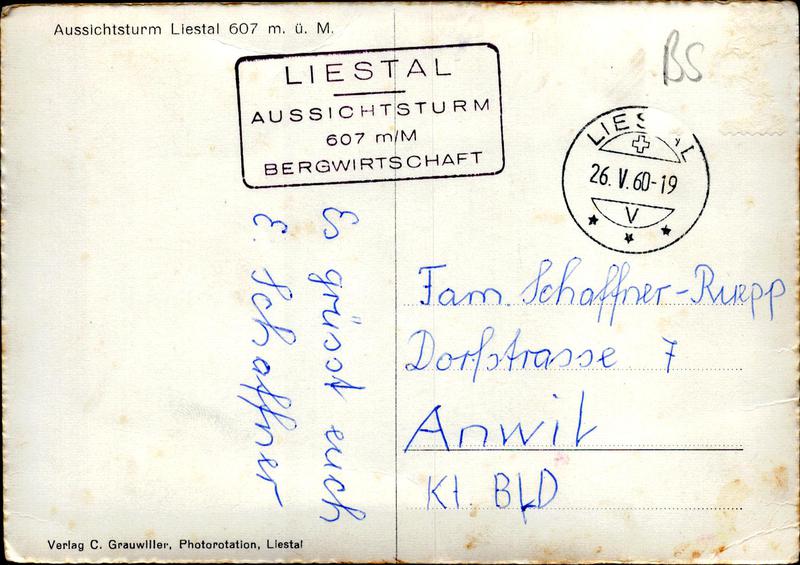 Aussichtsturm Liestal 607 m. ü. M.
LIESTAL
AUSSICHTSTURM
607 m/M
BERGWIRTSCHAFT
BS
26. V. 60-19
V
Es grüsst euch
E. Schaffner
Fam. Schaffner-Ruepp
Dorfstrasse 7
Anwil
Kt. BLD
Verlag C. Grauwiller, Photorotation, Liestal